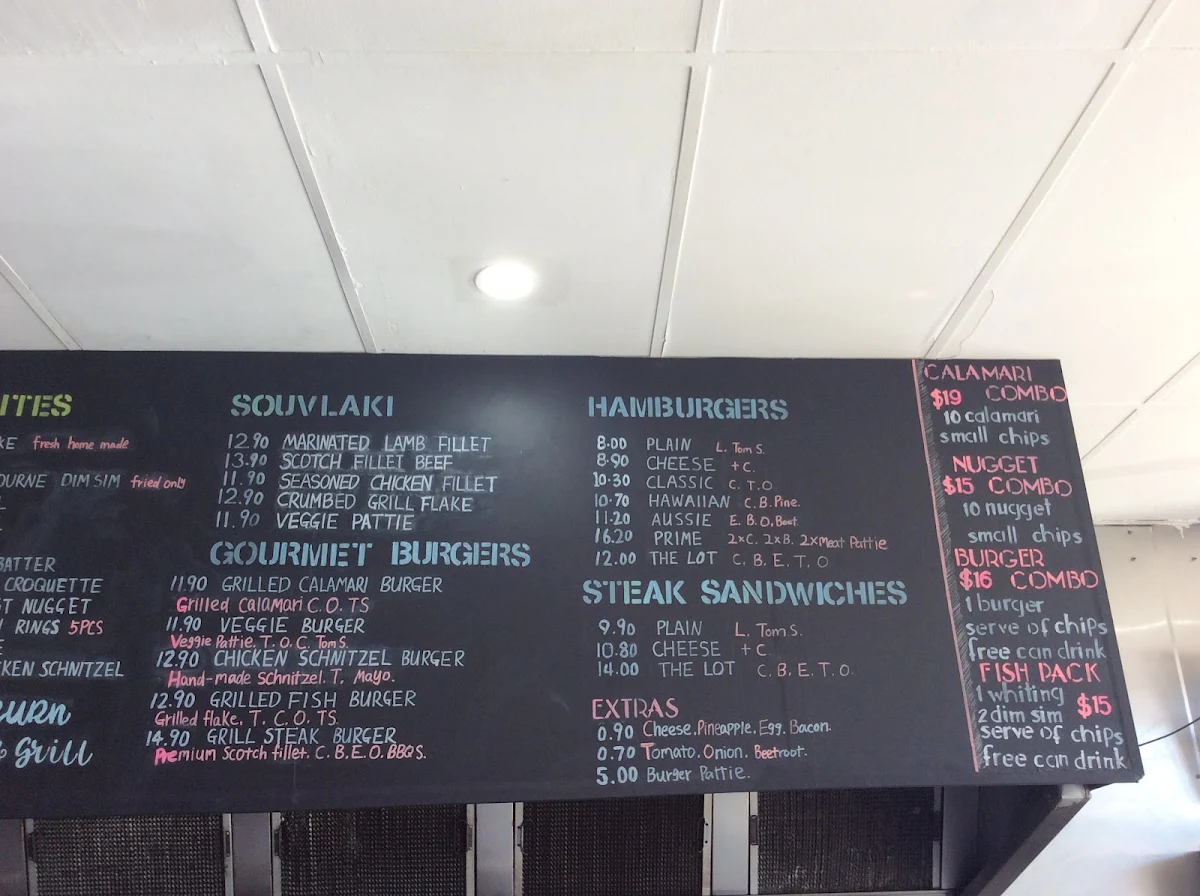 ITES
KE fresh home made
OURNE DIM SIM fried only
BATTER
CROQUETTE
T NUGGET
RINGS 5PCS
KEN SCHNITZEL
BURN
& Grill
SOUVLAKI
12.90 MARINATED LAMB FILLET
13.90 SCOTCH FILLET BEEF
11.90 SEASONED CHICKEN FILLET
12.90 CRUMBED GRILL FLAKE
11.90 VEGGIE PATTIE
GOURMET BURGERS
11.90 GRILLED CALAMARI BURGER
Grilled Calamari C. O. TS
11.90 VEGGIE BURGER
Veggie Pattie. T. O. C. Tom S.
12.90 CHICKEN SCHNITZEL BURGER
Hand-made Schnitzel. T. Mayo.
12.90 GRILLED FISH BURGER
Grilled flake. T. C. O. TS.
14.90 GRILL STEAK BURGER
Premium Scotch fillet. C. B. E. O. BBQ S.
HAMBURGERS
8.00 PLAIN L. Tom S.
8.90 CHEESE + C.
10.30 CLASSIC C. T. O
10.70 HAWAIIAN C. B. Pine.
11.20 AUSSIE E. B. O. Beet
16.20 PRIME 2xC. 2xB. 2xMeat Pattie
12.00 THE LOT C. B. E. T. O
STEAK SANDWICHES
9.90 PLAIN L. Tom S.
10.80 CHEESE + C
14.00 THE LOT C. B. E. T. O.
EXTRAS
0.90 Cheese. Pineapple. Egg. Bacon.
0.70 Tomato. Onion. Beetroot.
5.00 Burger Pattie.
CALAMARI
$19 COMBO
10 calamari
small chips
NUGGET
$15 COMBO
10 nugget
small chips
BURGER
$16 COMBO
1 burger
serve of chips
free can drink
FISH PACK
1 whiting
2 dim sim $15
serve of chips
free can drink